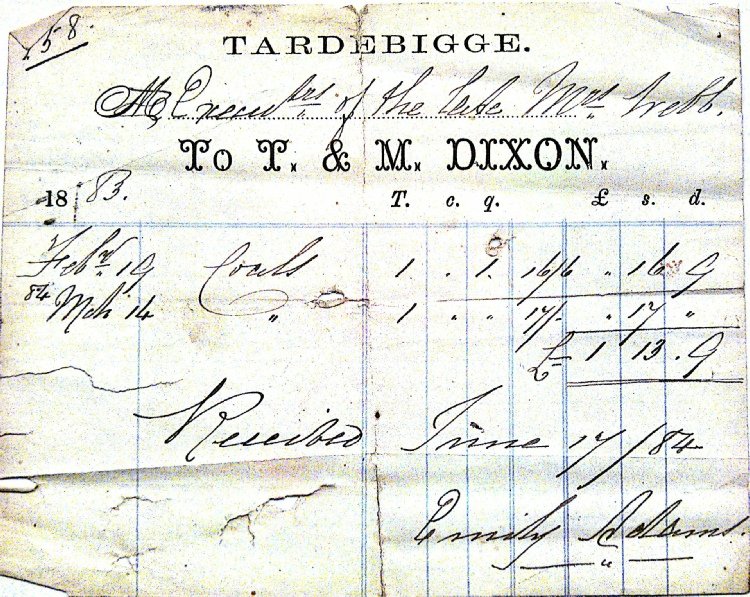 158.
TARDEBIGGE.
Executrs of the late Mrs Webb.
To T. & M. DIXON.
1883. T. c. q. £ s. d.
Febry 19 Coals 1 . 1 . 16/6 " 16 9
84 Mch 14 " 1 " " 17/- " 17 "
£ 1 13 . 9
Received June 17/84
Emily Adams.
"